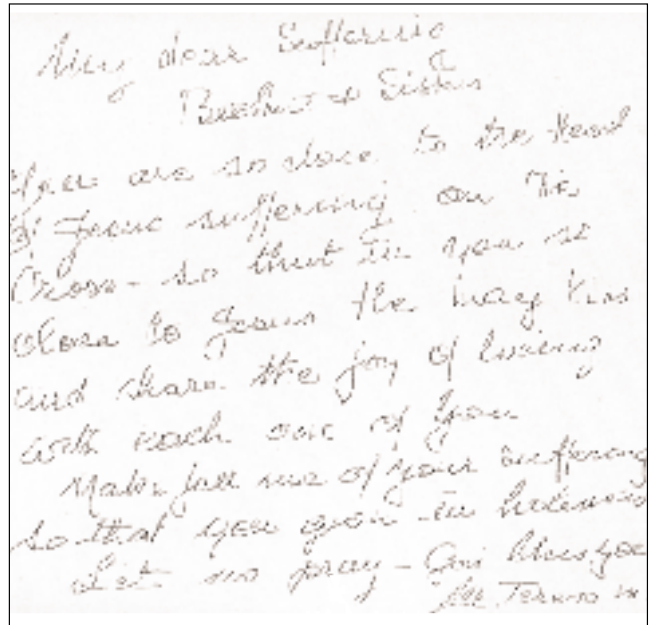 My dear Suffering
Brothers & Sisters
You are so close to the Heart
of Jesus suffering on the
Cross - so that in you is
close to Jesus the may kiss
and share the joy of loving
with each one of you
Make full use of your suffering
so that you grow in holiness
Let us pray - God bless you
M Teresa mc